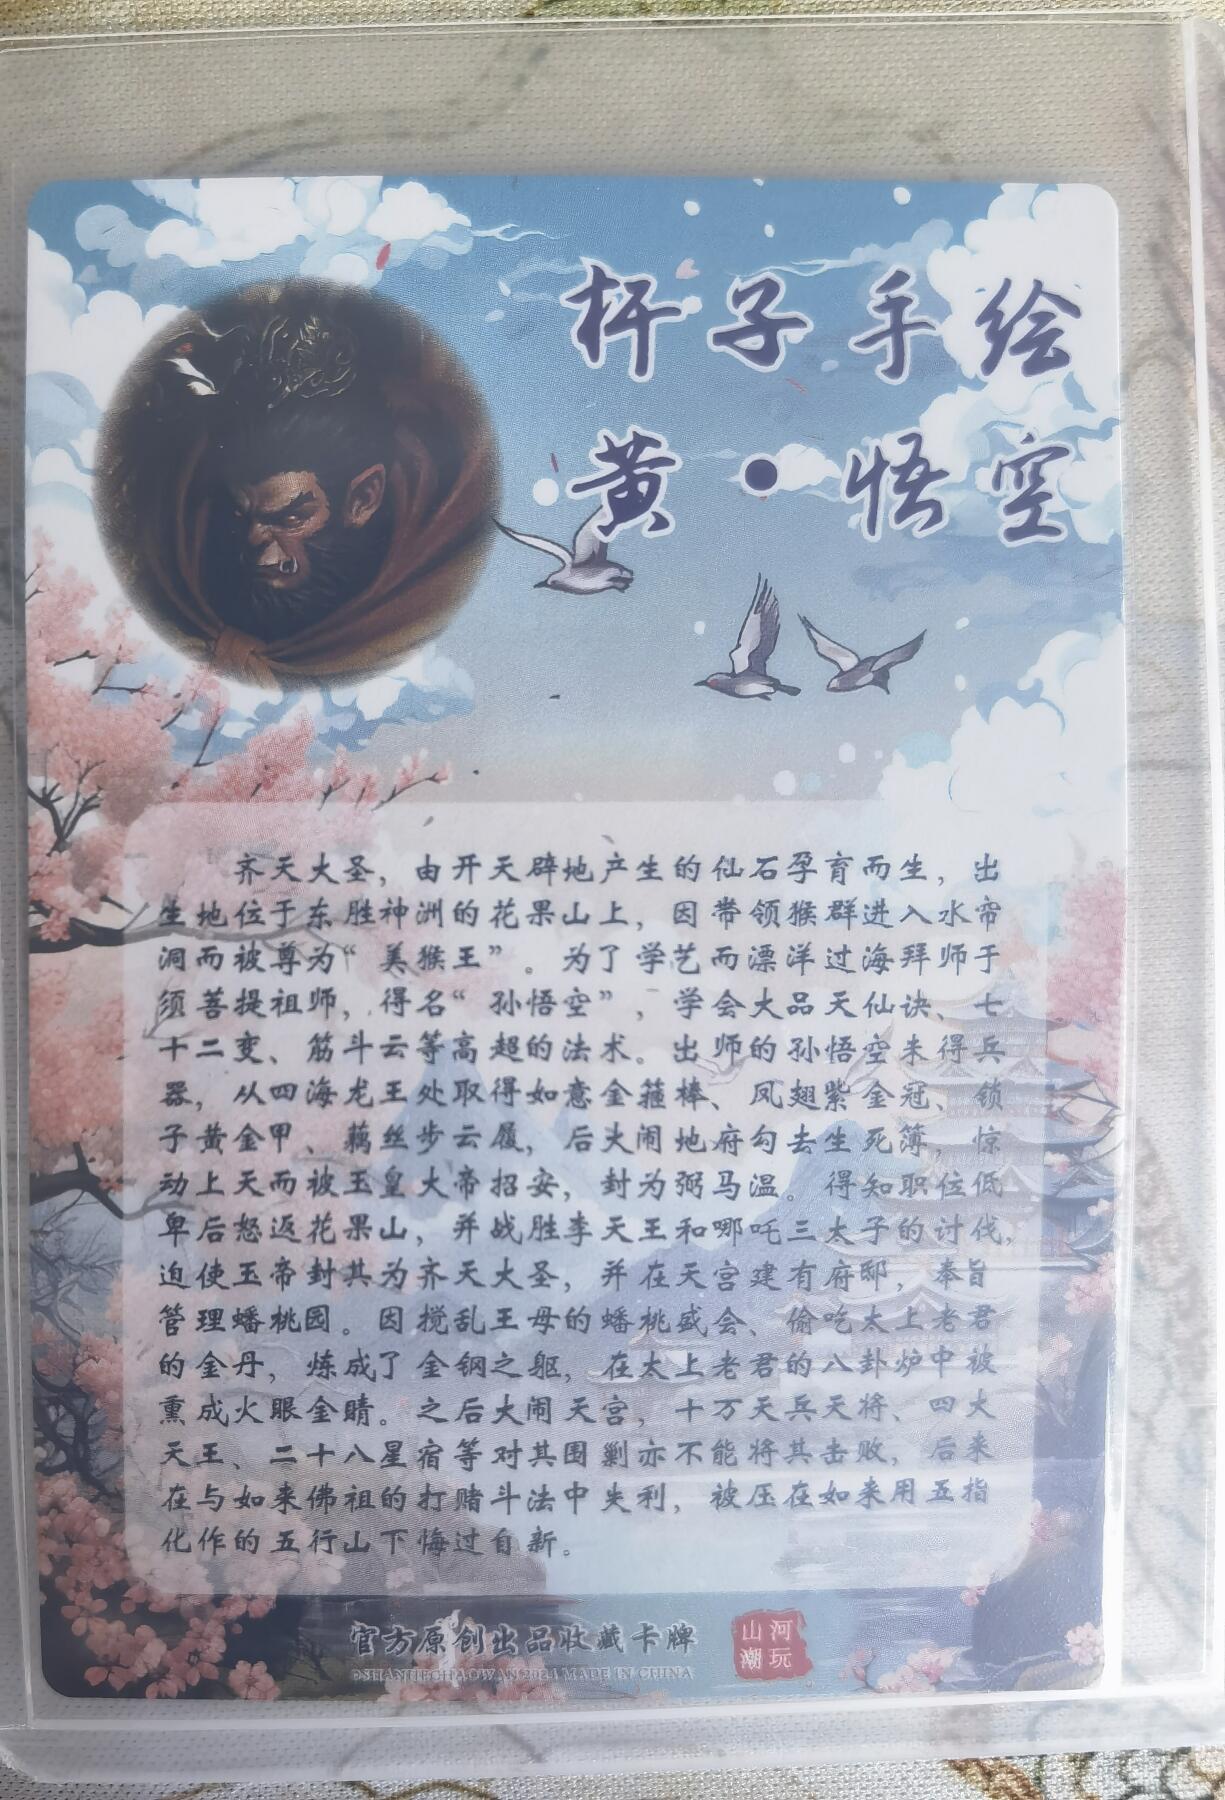 杆子手绘
黄·悟空
齐天大圣，由开天辟地产生的仙石孕育而生，出
生地位于东胜神洲的花果山上，因带领猴群进入水帘
洞而被尊为“美猴王”。为了学艺而漂洋过海拜师于
须菩提祖师，得名“孙悟空”，学会大品天仙诀、七
十二变、筋斗云等高超的法术。出师的孙悟空未得兵
器，从四海龙王处取得如意金箍棒、凤翅紫金冠、锁
子黄金甲、藕丝步云履，后大闹地府勾去生死簿，惊
动上天而被玉皇大帝招安，封为弼马温。得知职位低
卑后怒返花果山，并战胜李天王和哪吒三太子的讨伐，
迫使玉帝封其为齐天大圣，并在天宫建有府邸，奉旨
管理蟠桃园。因搅乱王母的蟠桃盛会、偷吃太上老君
的金丹，炼成了金钢之躯，在太上老君的八卦炉中被
熏成火眼金睛。之后大闹天宫，十万天兵天将、四大
天王、二十八星宿等对其围剿亦不能将其击败，后来
在与如来佛祖的打赌斗法中失利，被压在如来用五指
化作的五行山下悔过自新。
官方原创出品收藏卡牌
©SHANHECHAOWAN 2024 MADE IN CHINA
山河
潮玩